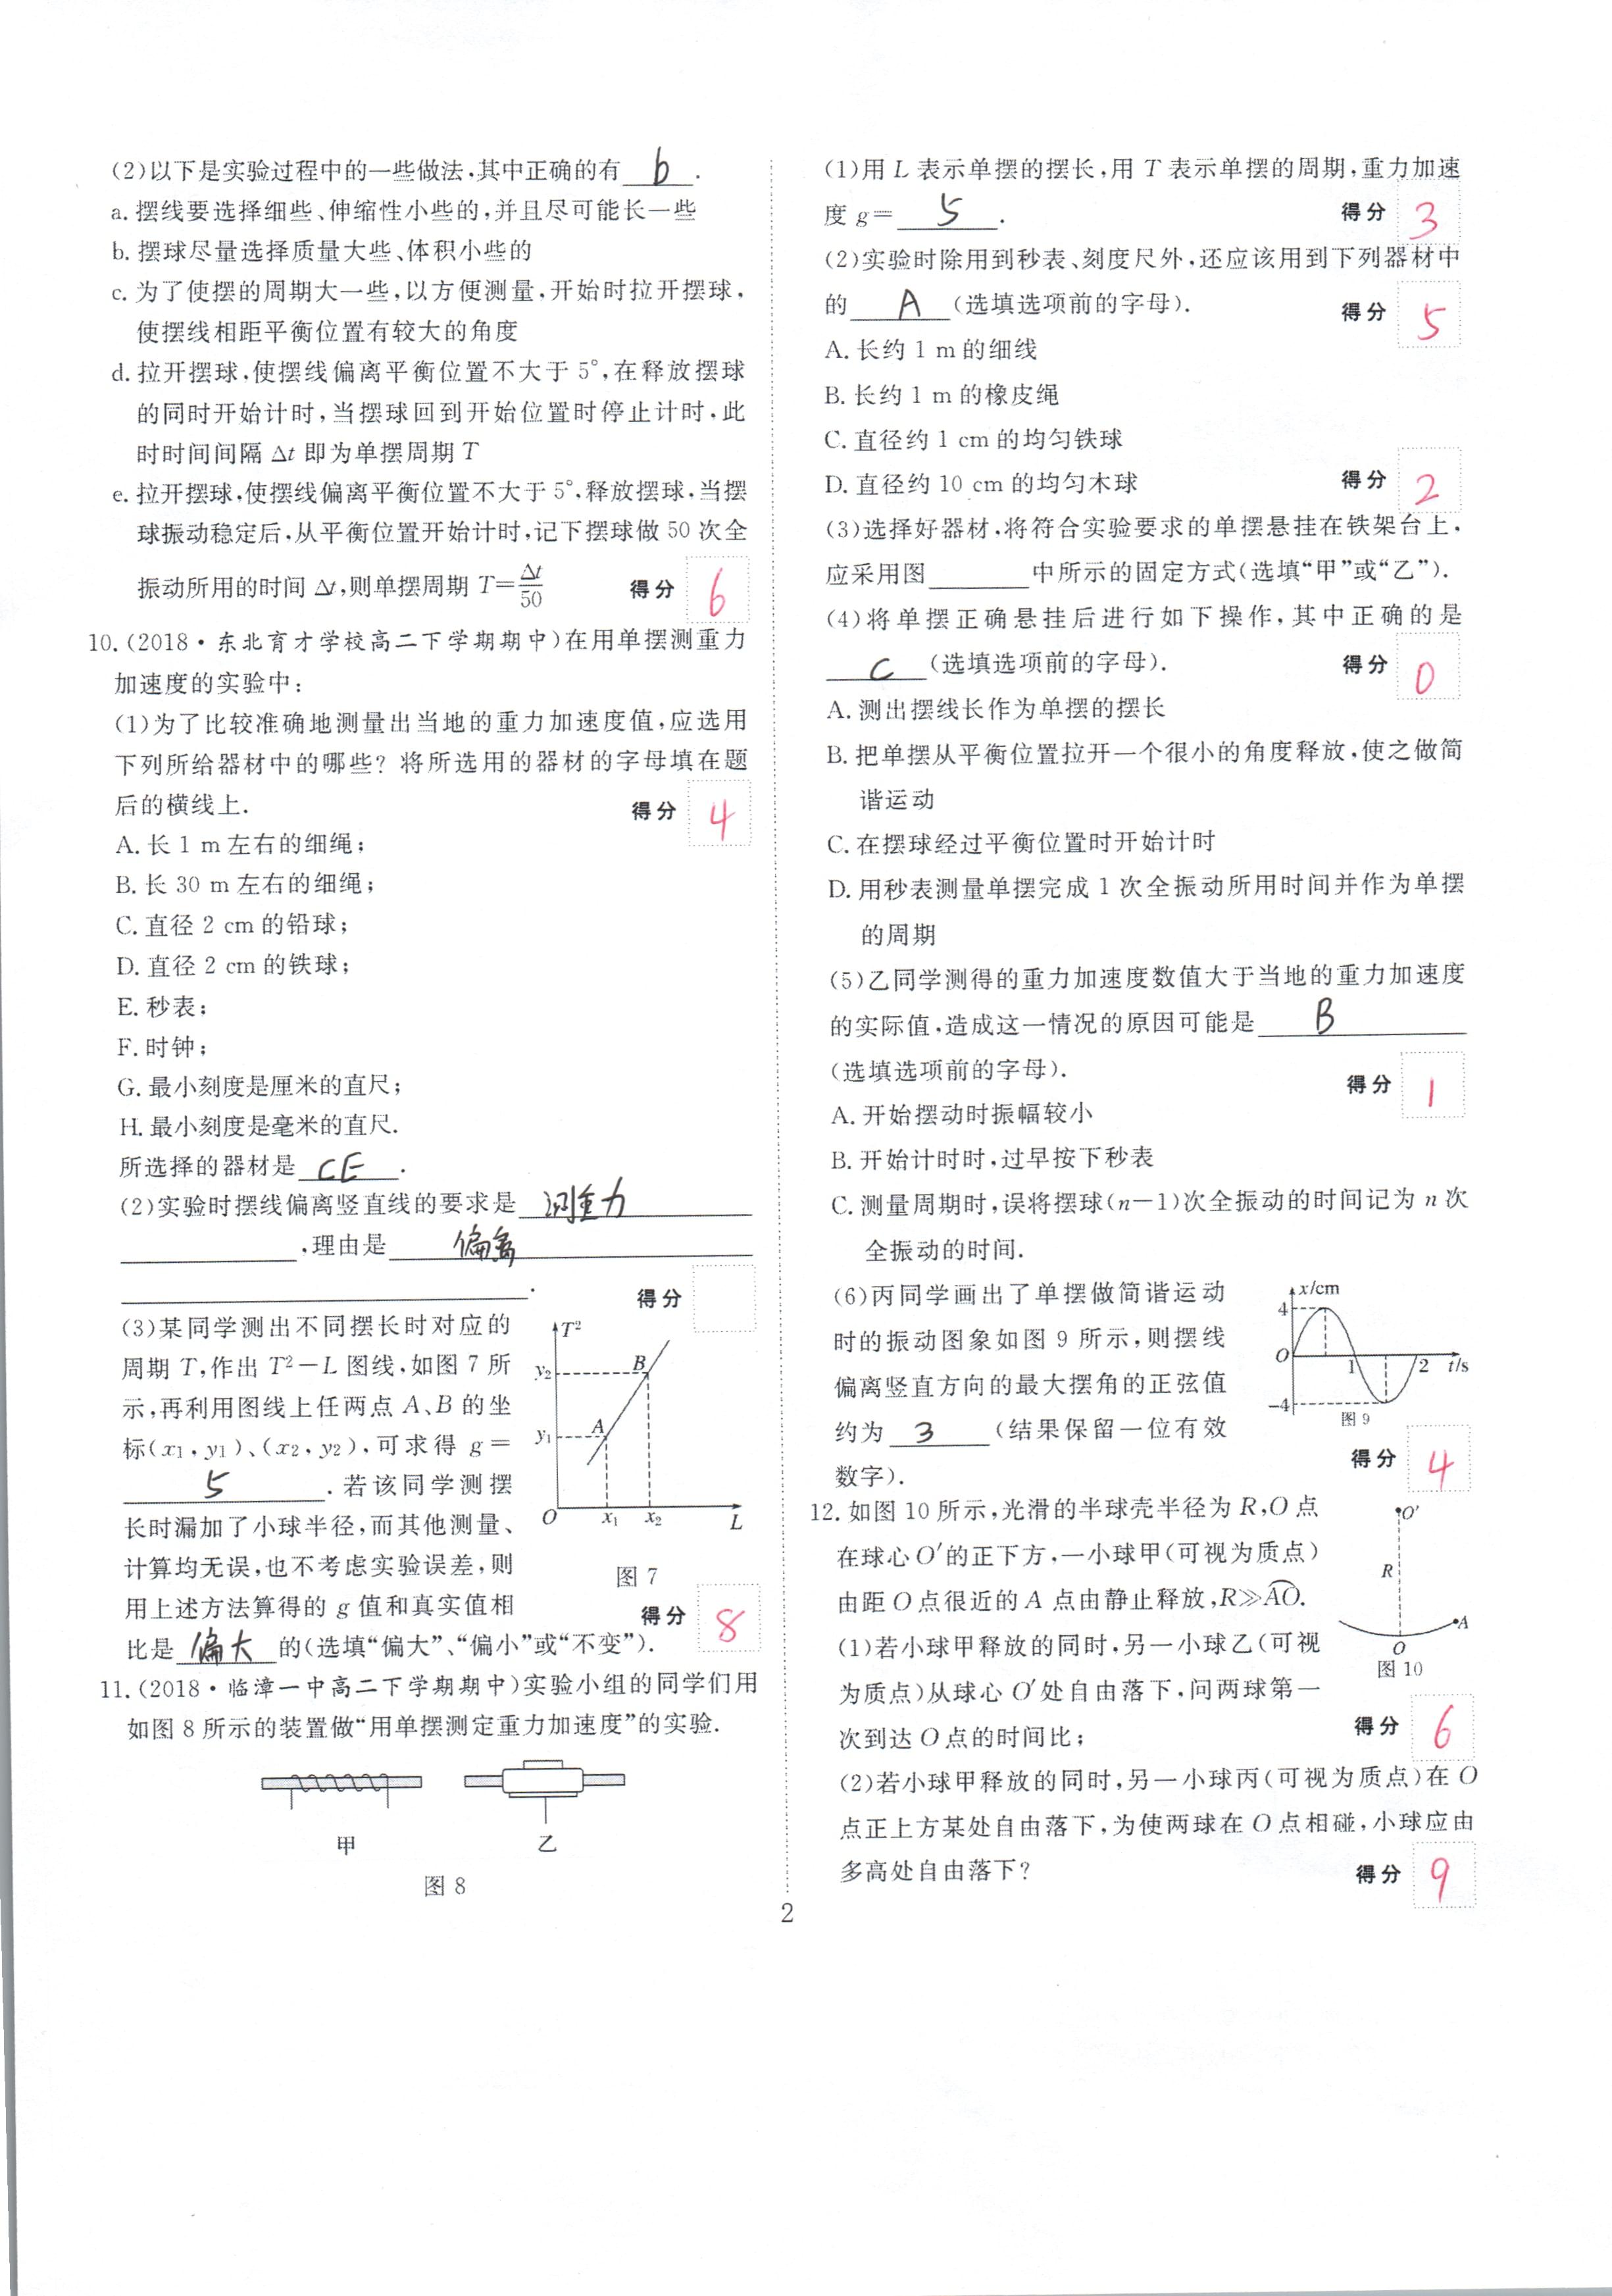 (2)以下是实验过程中的一些做法,其中正确的有 b .
a. 摆线要选择细些、伸缩性小些的,并且尽可能长一些
b. 摆球尽量选择质量大些、体积小些的
c. 为了使摆的周期大一些,以方便测量,开始时拉开摆球,
使摆线相距平衡位置有较大的角度
d. 拉开摆球,使摆线偏离平衡位置不大于 5°,在释放摆球
的同时开始计时,当摆球回到开始位置时停止计时,此
时时间间隔 Δt 即为单摆周期 T
e. 拉开摆球,使摆线偏离平衡位置不大于 5°,释放摆球,当摆
球振动稳定后,从平衡位置开始计时,记下摆球做 50 次全
振动所用的时间 Δt,则单摆周期 T=Δt/50 得分 6
10. (2018·东北育才学校高二下学期期中)在用单摆测重力
加速度的实验中:
(1)为了比较准确地测量出当地的重力加速度值,应选用
下列所给器材中的哪些? 将所选用的器材的字母填在题
后的横线上. 得分 4
A. 长 1 m 左右的细绳;
B. 长 30 m 左右的细绳;
C. 直径 2 cm 的铅球;
D. 直径 2 cm 的铁球;
E. 秒表;
F. 时钟;
G. 最小刻度是厘米的直尺;
H. 最小刻度是毫米的直尺.
所选择的器材是 CE .
(2)实验时摆线偏离竖直线的要求是 测重力
,理由是 偏离
. 得分
(3)某同学测出不同摆长时对应的
周期 T,作出 T²-L 图线,如图 7 所
示,再利用图线上任两点 A、B 的坐
标(x₁,y₁)、(x₂,y₂),可求得 g=
5 .若该同学测摆
长时漏加了小球半径,而其他测量、
计算均无误,也不考虑实验误差,则
用上述方法算得的 g 值和真实值相
比是 偏大 的(选填“偏大”、“偏小”或“不变”).
T²
y₂ B
y₁ A
O x₁ x₂ L
图 7
得分 8
11. (2018·临漳一中高二下学期期中)实验小组的同学们用
如图 8 所示的装置做“用单摆测定重力加速度”的实验.
甲 乙
图 8
(1)用 L 表示单摆的摆长,用 T 表示单摆的周期,重力加速
度 g= 5 . 得分 3
(2)实验时除用到秒表、刻度尺外,还应该用到下列器材中
的 A (选填选项前的字母). 得分 5
A. 长约 1 m 的细线
B. 长约 1 m 的橡皮绳
C. 直径约 1 cm 的均匀铁球
D. 直径约 10 cm 的均匀木球 得分 2
(3)选择好器材,将符合实验要求的单摆悬挂在铁架台上,
应采用图 中所示的固定方式(选填“甲”或“乙”).
(4)将单摆正确悬挂后进行如下操作,其中正确的是
C (选填选项前的字母). 得分 0
A. 测出摆线长作为单摆的摆长
B. 把单摆从平衡位置拉开一个很小的角度释放,使之做简
谐运动
C. 在摆球经过平衡位置时开始计时
D. 用秒表测量单摆完成 1 次全振动所用时间并作为单摆
的周期
(5)乙同学测得的重力加速度数值大于当地的重力加速度
的实际值,造成这一情况的原因可能是 B
(选填选项前的字母). 得分 1
A. 开始摆动时振幅较小
B. 开始计时时,过早按下秒表
C. 测量周期时,误将摆球(n-1)次全振动的时间记为 n 次
全振动的时间.
(6)丙同学画出了单摆做简谐运动
时的振动图象如图 9 所示,则摆线
偏离竖直方向的最大摆角的正弦值
约为 3 (结果保留一位有效
数字).
x/cm
4
O 1 2 t/s
-4
图 9
得分 4
12. 如图 10 所示,光滑的半球壳半径为 R,O 点
在球心 O′的正下方,一小球甲(可视为质点)
由距 O 点很近的 A 点由静止释放,R≫AO.
(1)若小球甲释放的同时,另一小球乙(可视
为质点)从球心 O′处自由落下,问两球第一
次到达 O 点的时间比;
O′
R
A
O
图 10
得分 6
(2)若小球甲释放的同时,另一小球丙(可视为质点)在 O
点正上方某处自由落下,为使两球在 O 点相碰,小球应由
多高处自由落下? 得分 9
2